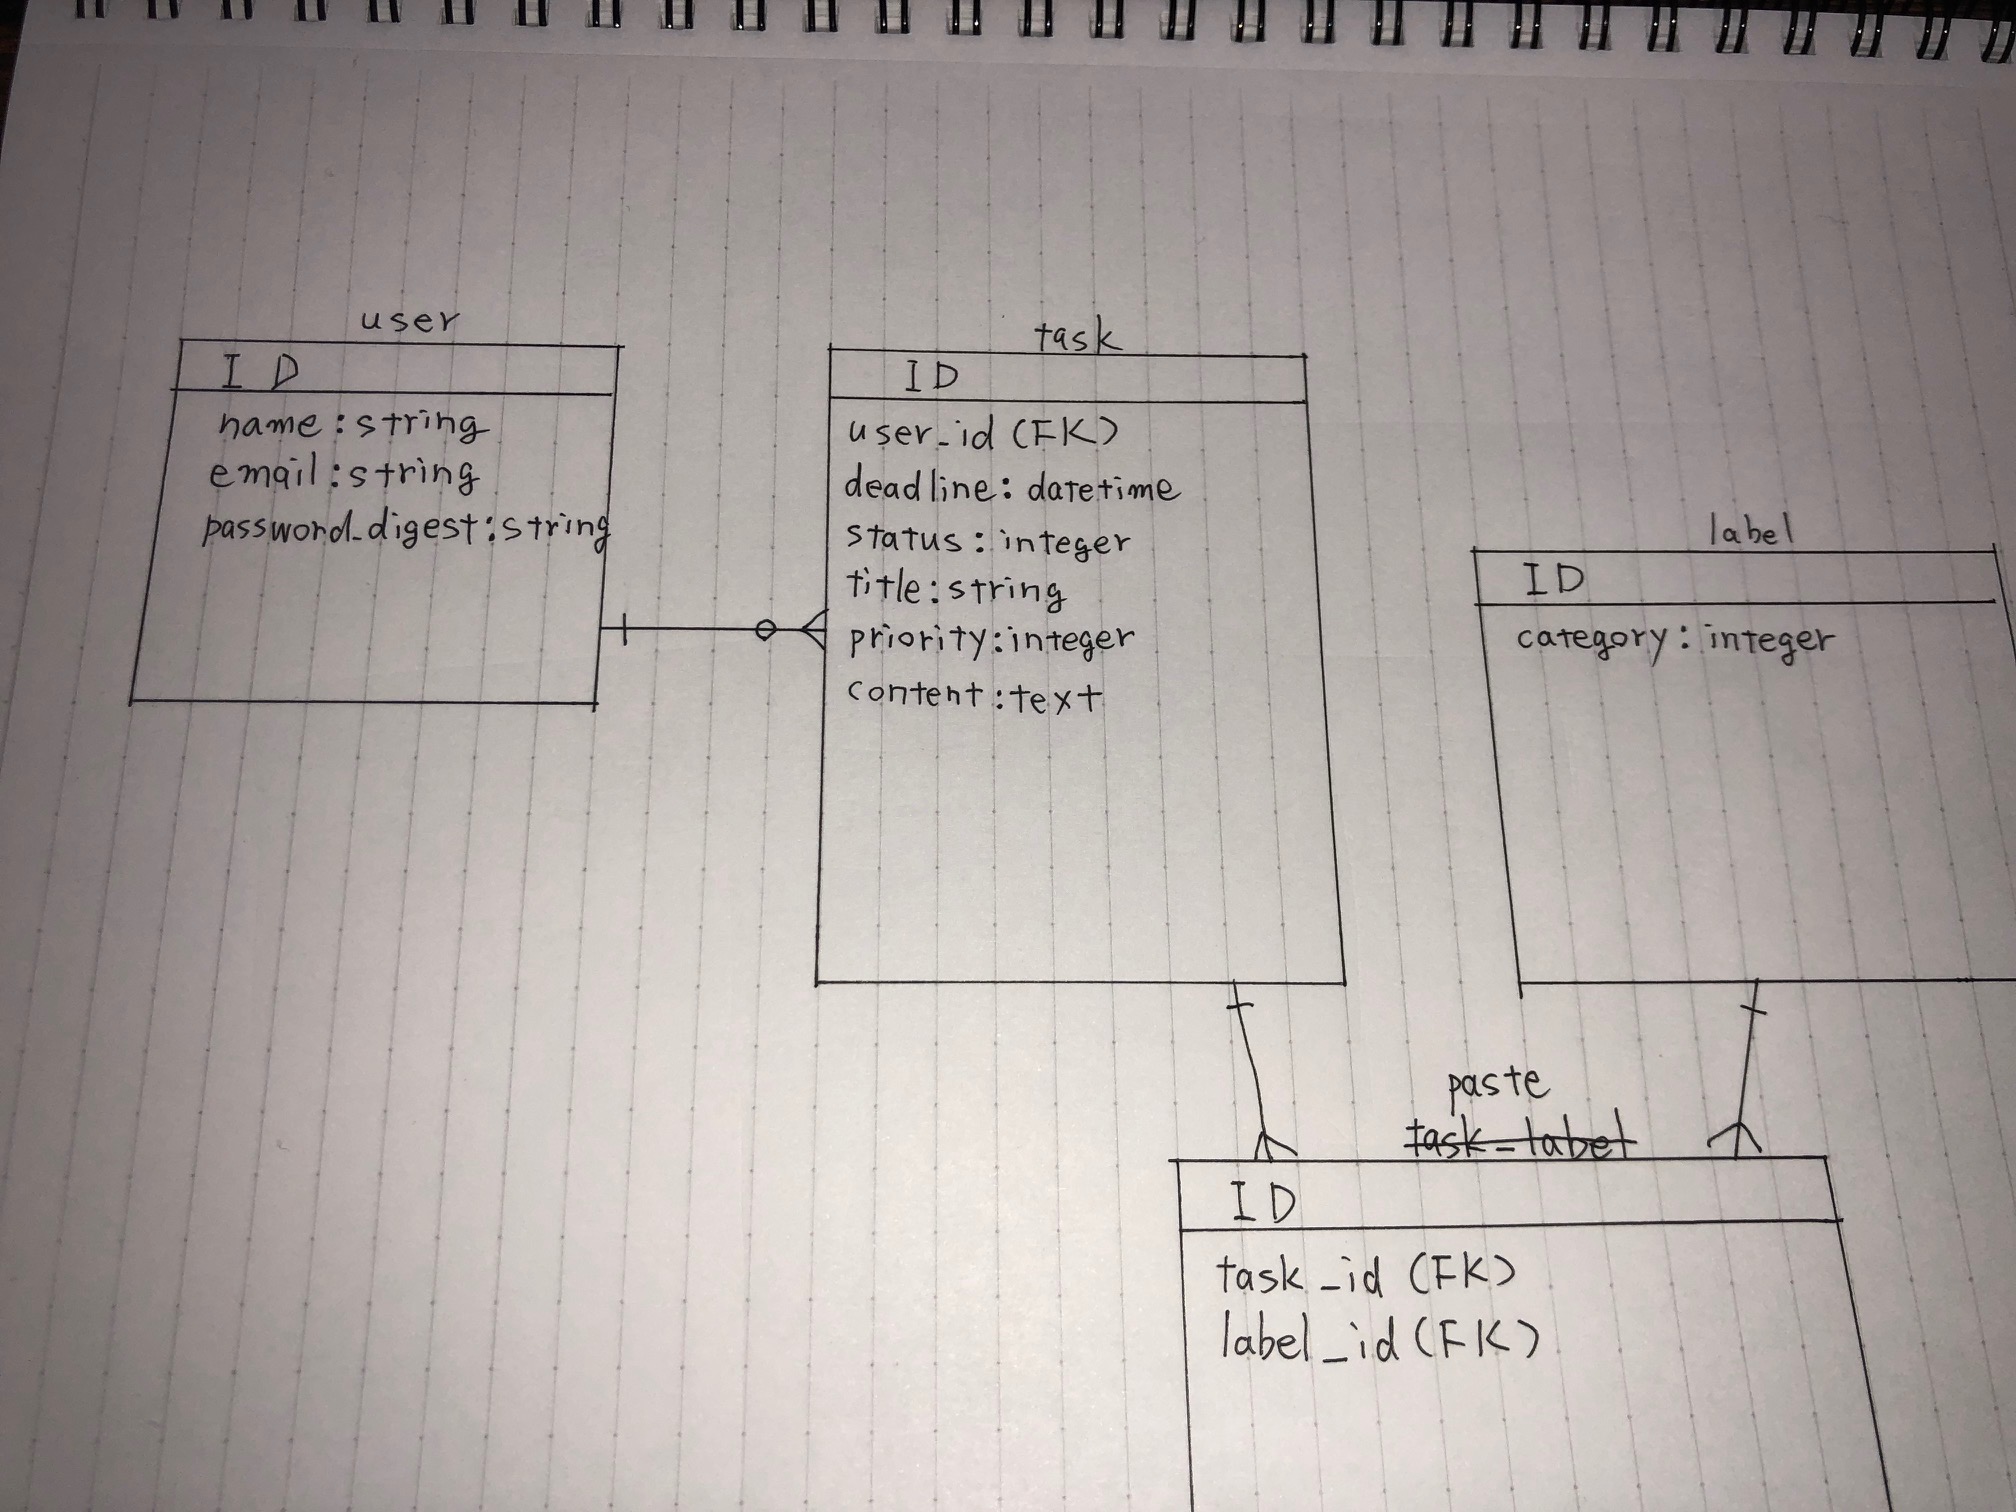 user
ID
name:string
email:string
password_digest:string
task
ID
user_id (FK)
deadline: datetime
status: integer
title:string
priority:integer
content:text
label
ID
category: integer
paste
task_label
ID
task_id (FK)
label_id (FK)